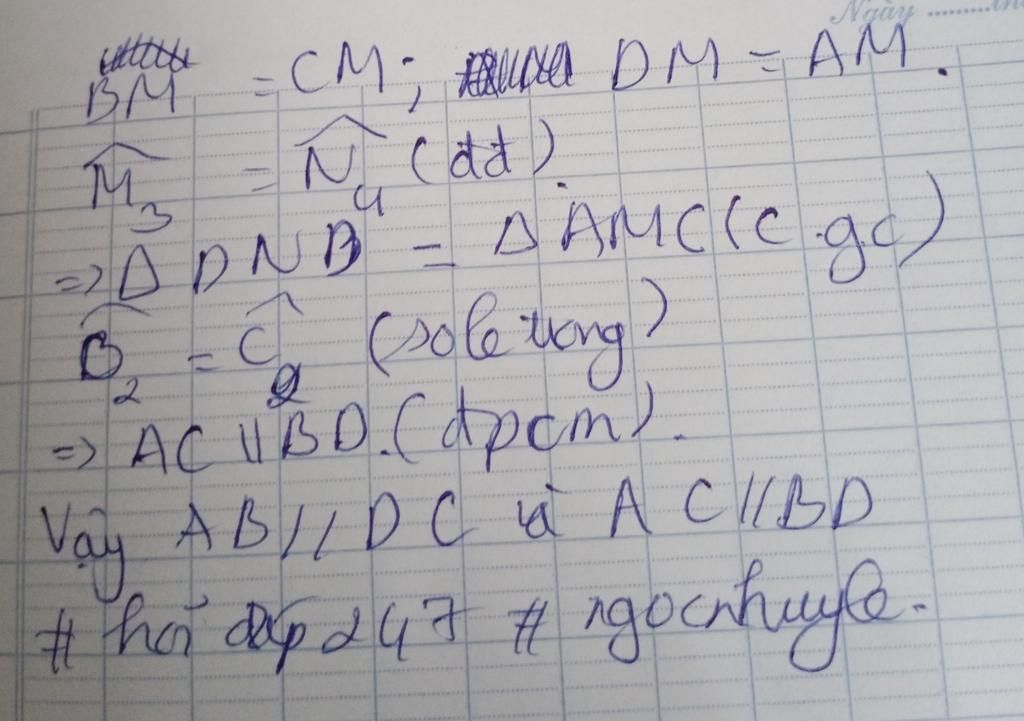 Ngày ..........
BM = CM; DM = AM.
M̂₃ = N̂₄ (đđ)
=> Δ DNB = Δ AMC (c.g.c)
B̂₂ = Ĉ₂ (sole trong)
=> AC // BD. (đpcm).
Vậy AB // DC và AC // BD
# hỏi đáp 247 # ngocnhuyle.